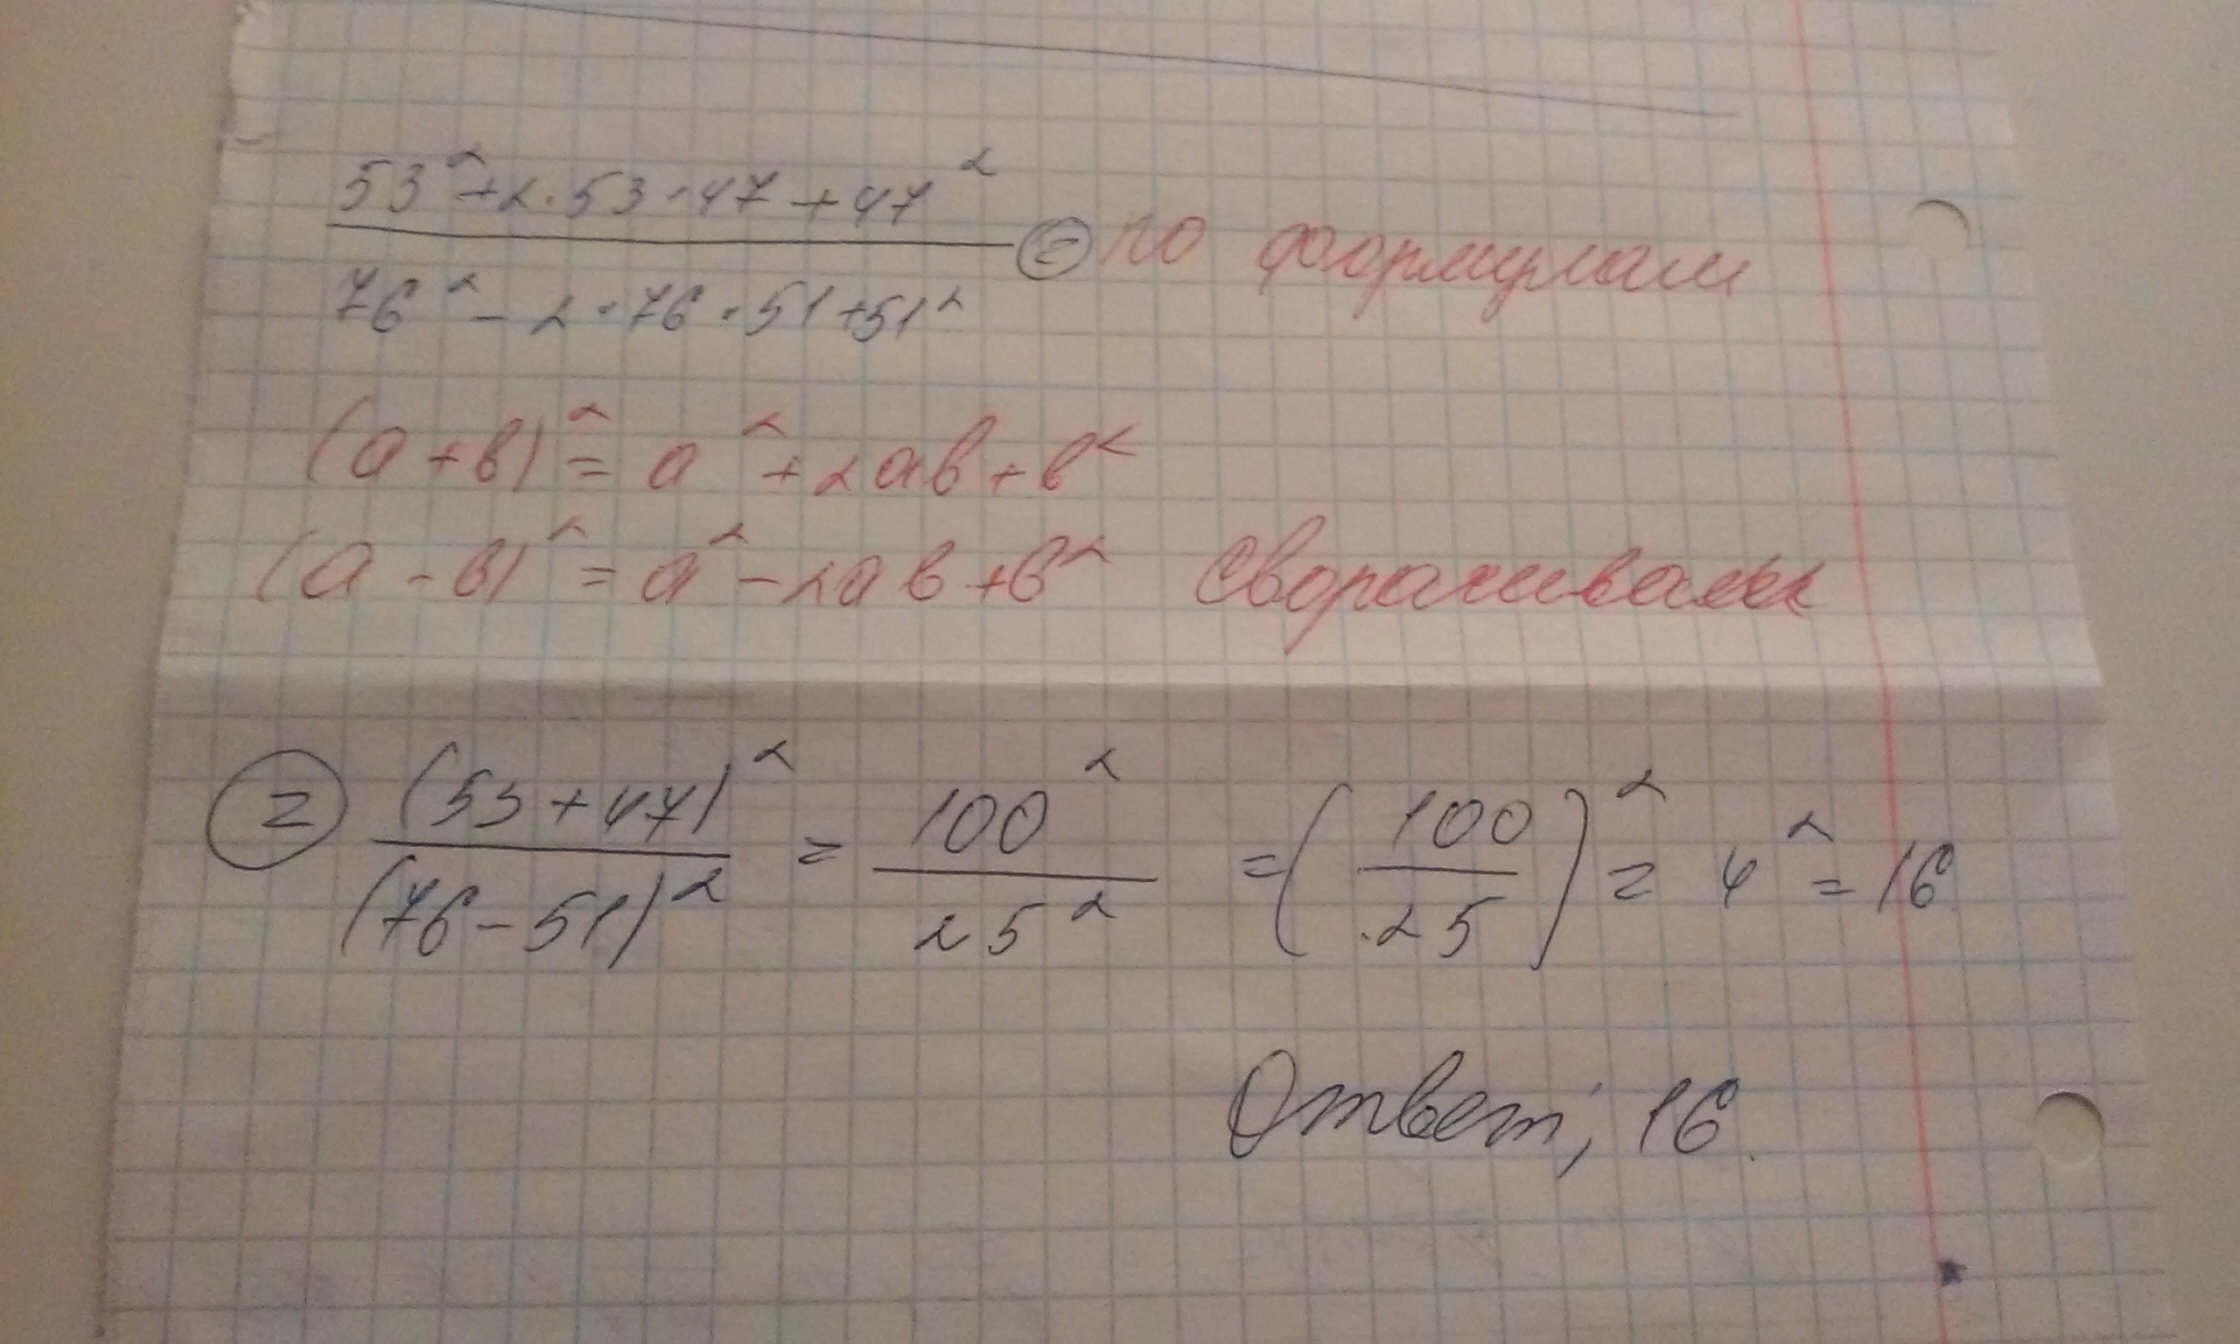 53²+2·53·47+47² / 76²-2·76·51+51² = по формулам
(a+b)²=a²+2ab+b²
(a-b)²=a²-2ab+b² сворачиваем
= (53+47)² / (76-51)² = 100² / 25² = (100/25)² = 4² = 16
Ответ; 16.